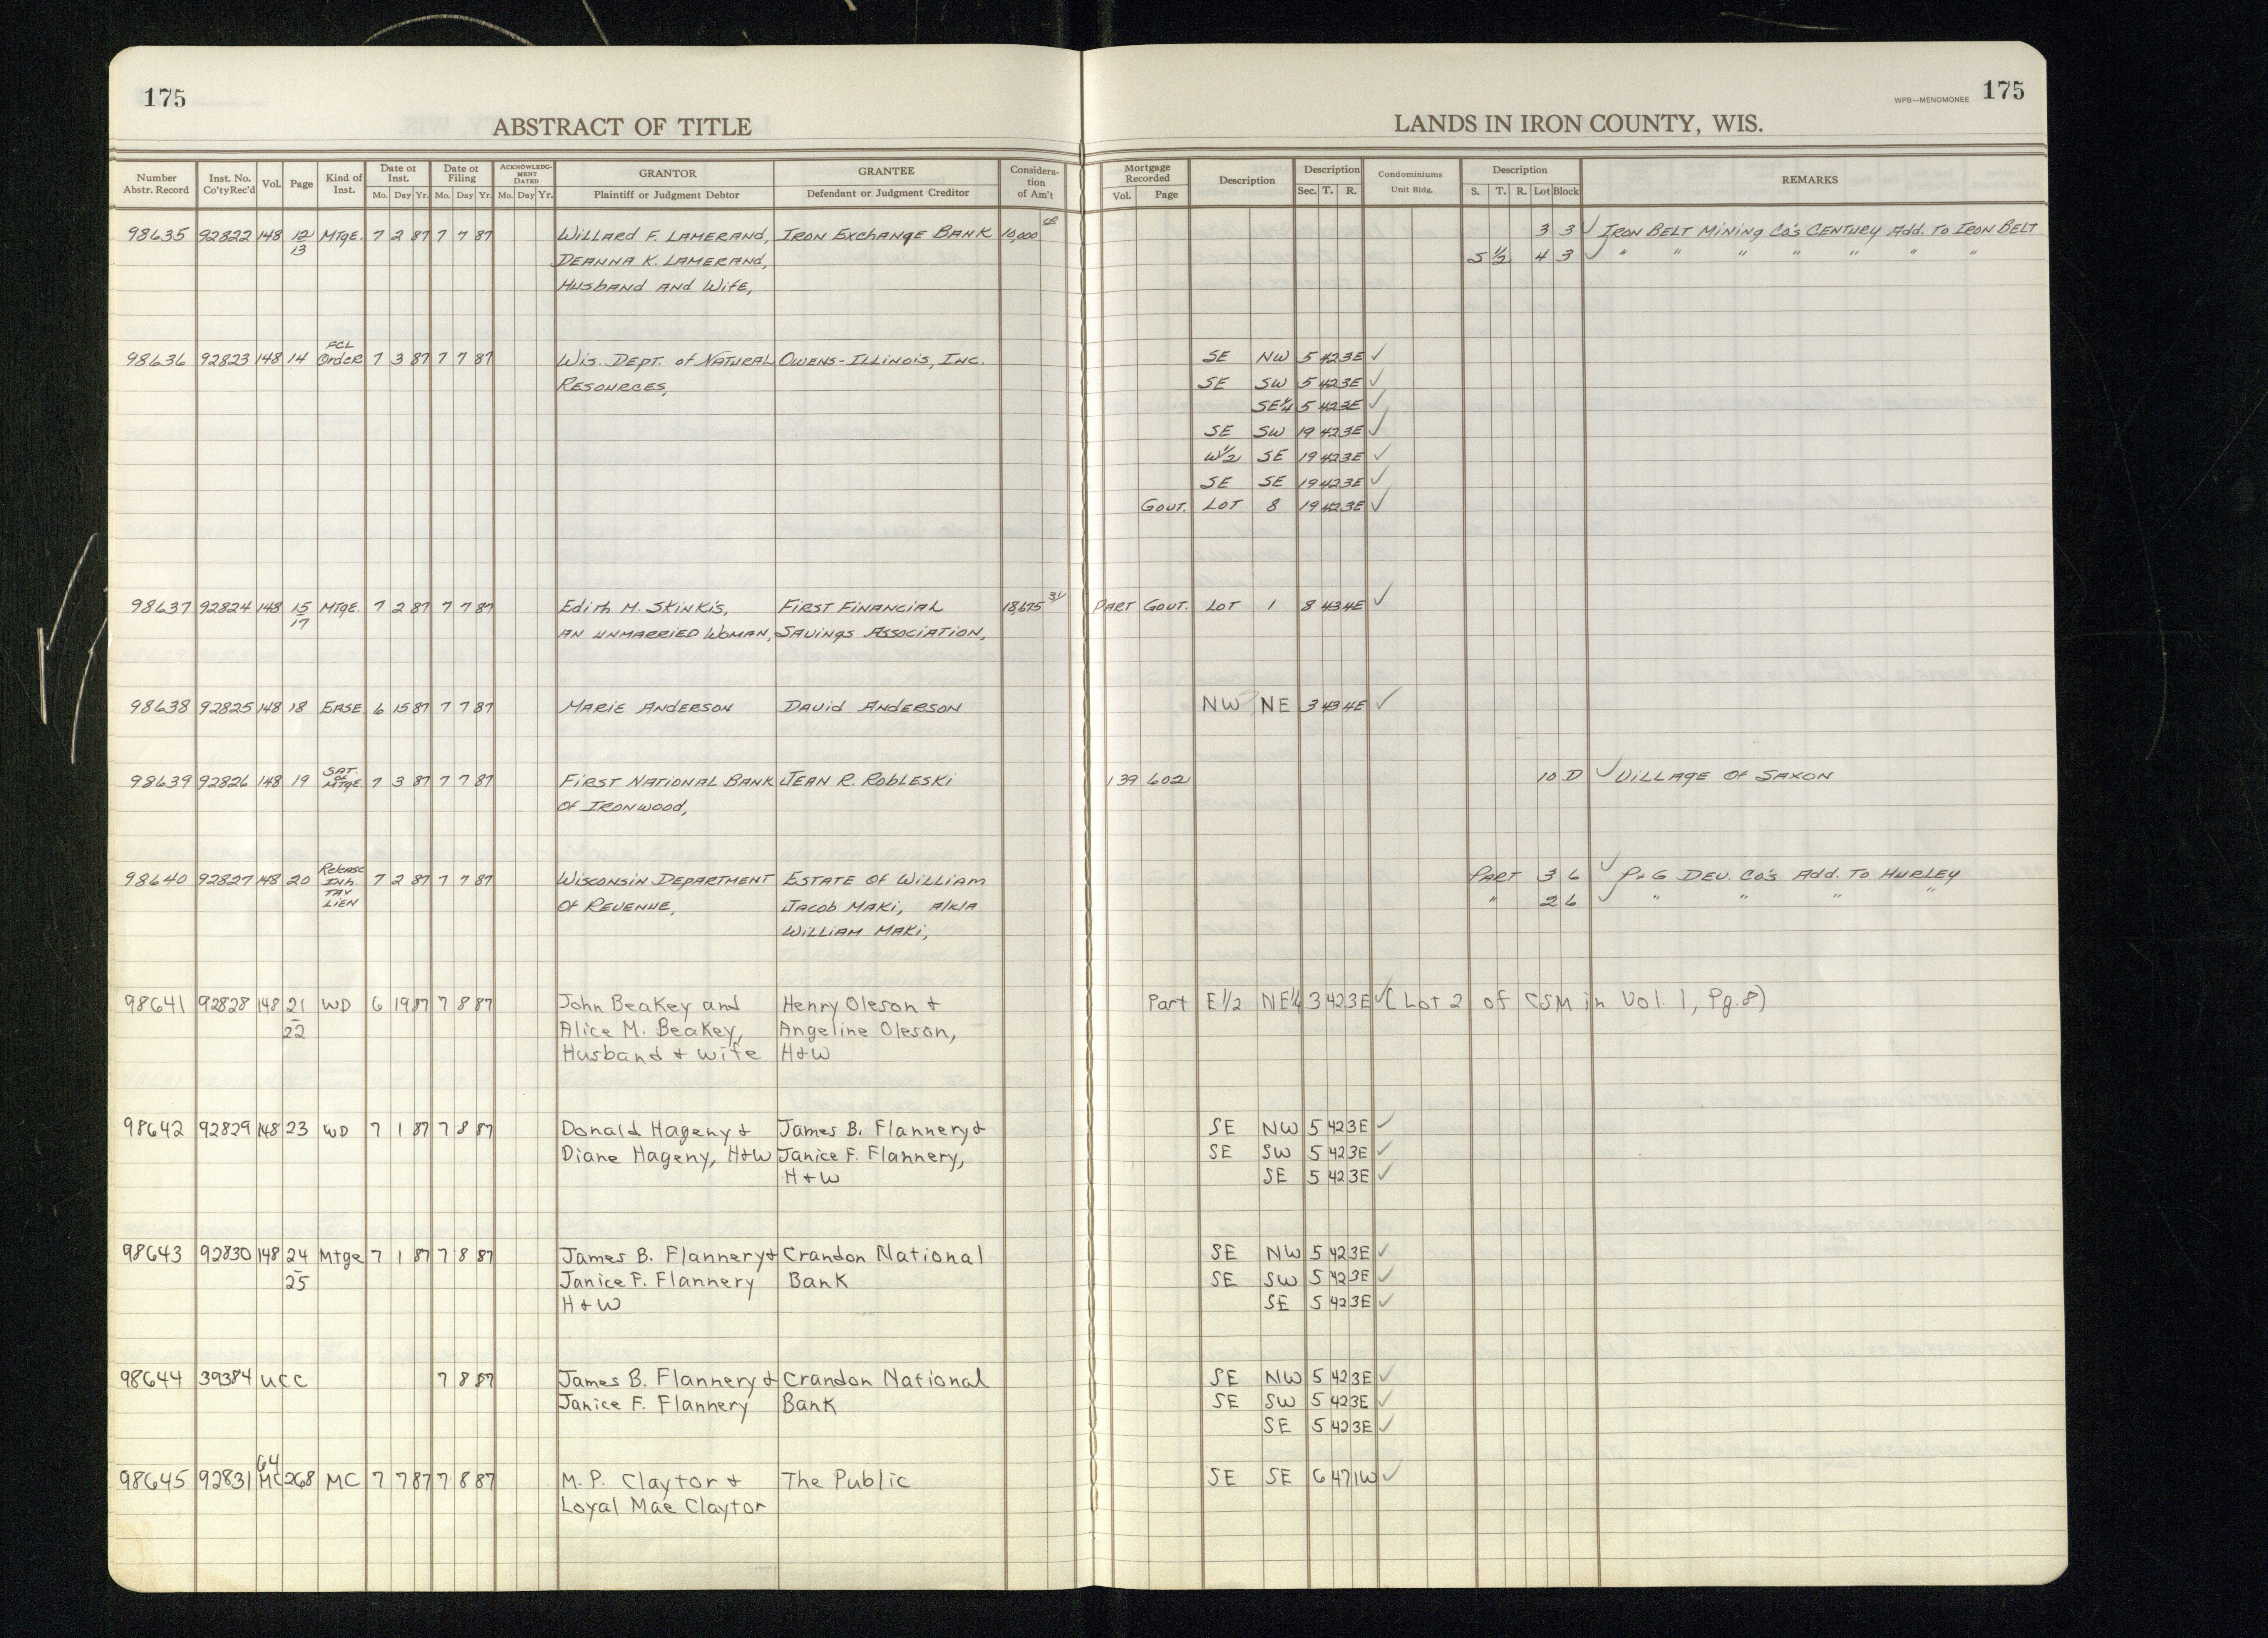 175
ABSTRACT OF TITLE
WPB—MENOMONEE 175
LANDS IN IRON COUNTY, WIS.
Number Abstr. Record | Inst. No. Co'tyRec'd | Vol. | Page | Kind of Inst. | Date of Inst. Mo. Day Yr. | Date of Filing Mo. Day Yr. | ACKNOWLEDGMENT DATED Mo. Day Yr. | GRANTOR Plaintiff or Judgment Debtor | GRANTEE Defendant or Judgment Creditor | Consideration of Am't | Mortgage Recorded Vol. Page | Description | Description Sec. T. R. | Condominiums Unit Bldg. | Description S. T. R. Lot Block | REMARKS
98635 92822 148 12 MTGE. 7 2 87 7 7 87 WILLARD F. LAMERAND, IRON EXCHANGE BANK 10,000 3 3 ✓ IRON BELT MINING CO'S CENTURY ADD. TO IRON BELT
13 DEANNA K. LAMERAND, S 1/2 4 3 ✓ " " " " " " "
HUSBAND AND WIFE,
98636 92823 148 14 FCL ORDER 7 3 87 7 7 87 WIS. DEPT. of NATURAL OWENS-ILLINOIS, INC. SE NW 5 42 3E ✓
RESOURCES, SE SW 5 42 3E ✓
SE¼ 5 42 3E ✓
SE SW 19 42 3E ✓
W½ SE 19 42 3E ✓
SE SE 19 42 3E ✓
GOVT. LOT 8 19 42 3E ✓
98637 92824 148 15 MTGE. 7 2 87 7 7 87 EDITH M. SKINKIS, FIRST FINANCIAL 18,675 31 PART GOVT. LOT 1 8 43 4E ✓
17 AN UNMARRIED WOMAN, SAVINGS ASSOCIATION,
98638 92825 148 18 EASE 6 15 87 7 7 87 MARIE ANDERSON DAVID ANDERSON NW NE 3 43 4E ✓
98639 92826 148 19 SAT. OF MTGE. 7 3 87 7 7 87 FIRST NATIONAL BANK JEAN R. ROBLESKI 139 602 10 D ✓ VILLAGE OF SAXON
OF IRONWOOD,
98640 92827 148 20 Release INH. TAX LIEN 7 2 87 7 7 87 WISCONSIN DEPARTMENT ESTATE OF WILLIAM PART 3 6 ✓ P+G DEV. CO'S ADD. TO HURLEY
OF REVENUE, JACOB MAKI, A/K/A " 2 6 ✓ " " " "
WILLIAM MAKI,
98641 92828 148 21 WD 6 19 87 7 8 87 John Beakey and Henry Oleson + Part E 1/2 NE¼ 3 42 3E ✓ (Lot 2 of CSM in Vol. 1, Pg. 8)
22 Alice M. Beakey, Angeline Oleson,
Husband + wife H+W
98642 92829 148 23 WD 7 1 87 7 8 87 Donald Hageny + James B. Flannery + SE NW 5 42 3E ✓
Diane Hageny, H+W Janice F. Flannery, SE SW 5 42 3E ✓
H+W SE 5 42 3E ✓
98643 92830 148 24 Mtge 7 1 87 7 8 87 James B. Flannery + Crandon National SE NW 5 42 3E ✓
25 Janice F. Flannery Bank SE SW 5 42 3E ✓
H+W SE 5 42 3E ✓
98644 39384 UCC 7 8 87 James B. Flannery + Crandon National SE NW 5 42 3E ✓
Janice F. Flannery Bank SE SW 5 42 3E ✓
SE 5 42 3E ✓
98645 92831 64 MC 268 MC 7 7 87 7 8 87 M. P. Claytor + The Public SE SE 6 47 1W ✓
Loyal Mae Claytor